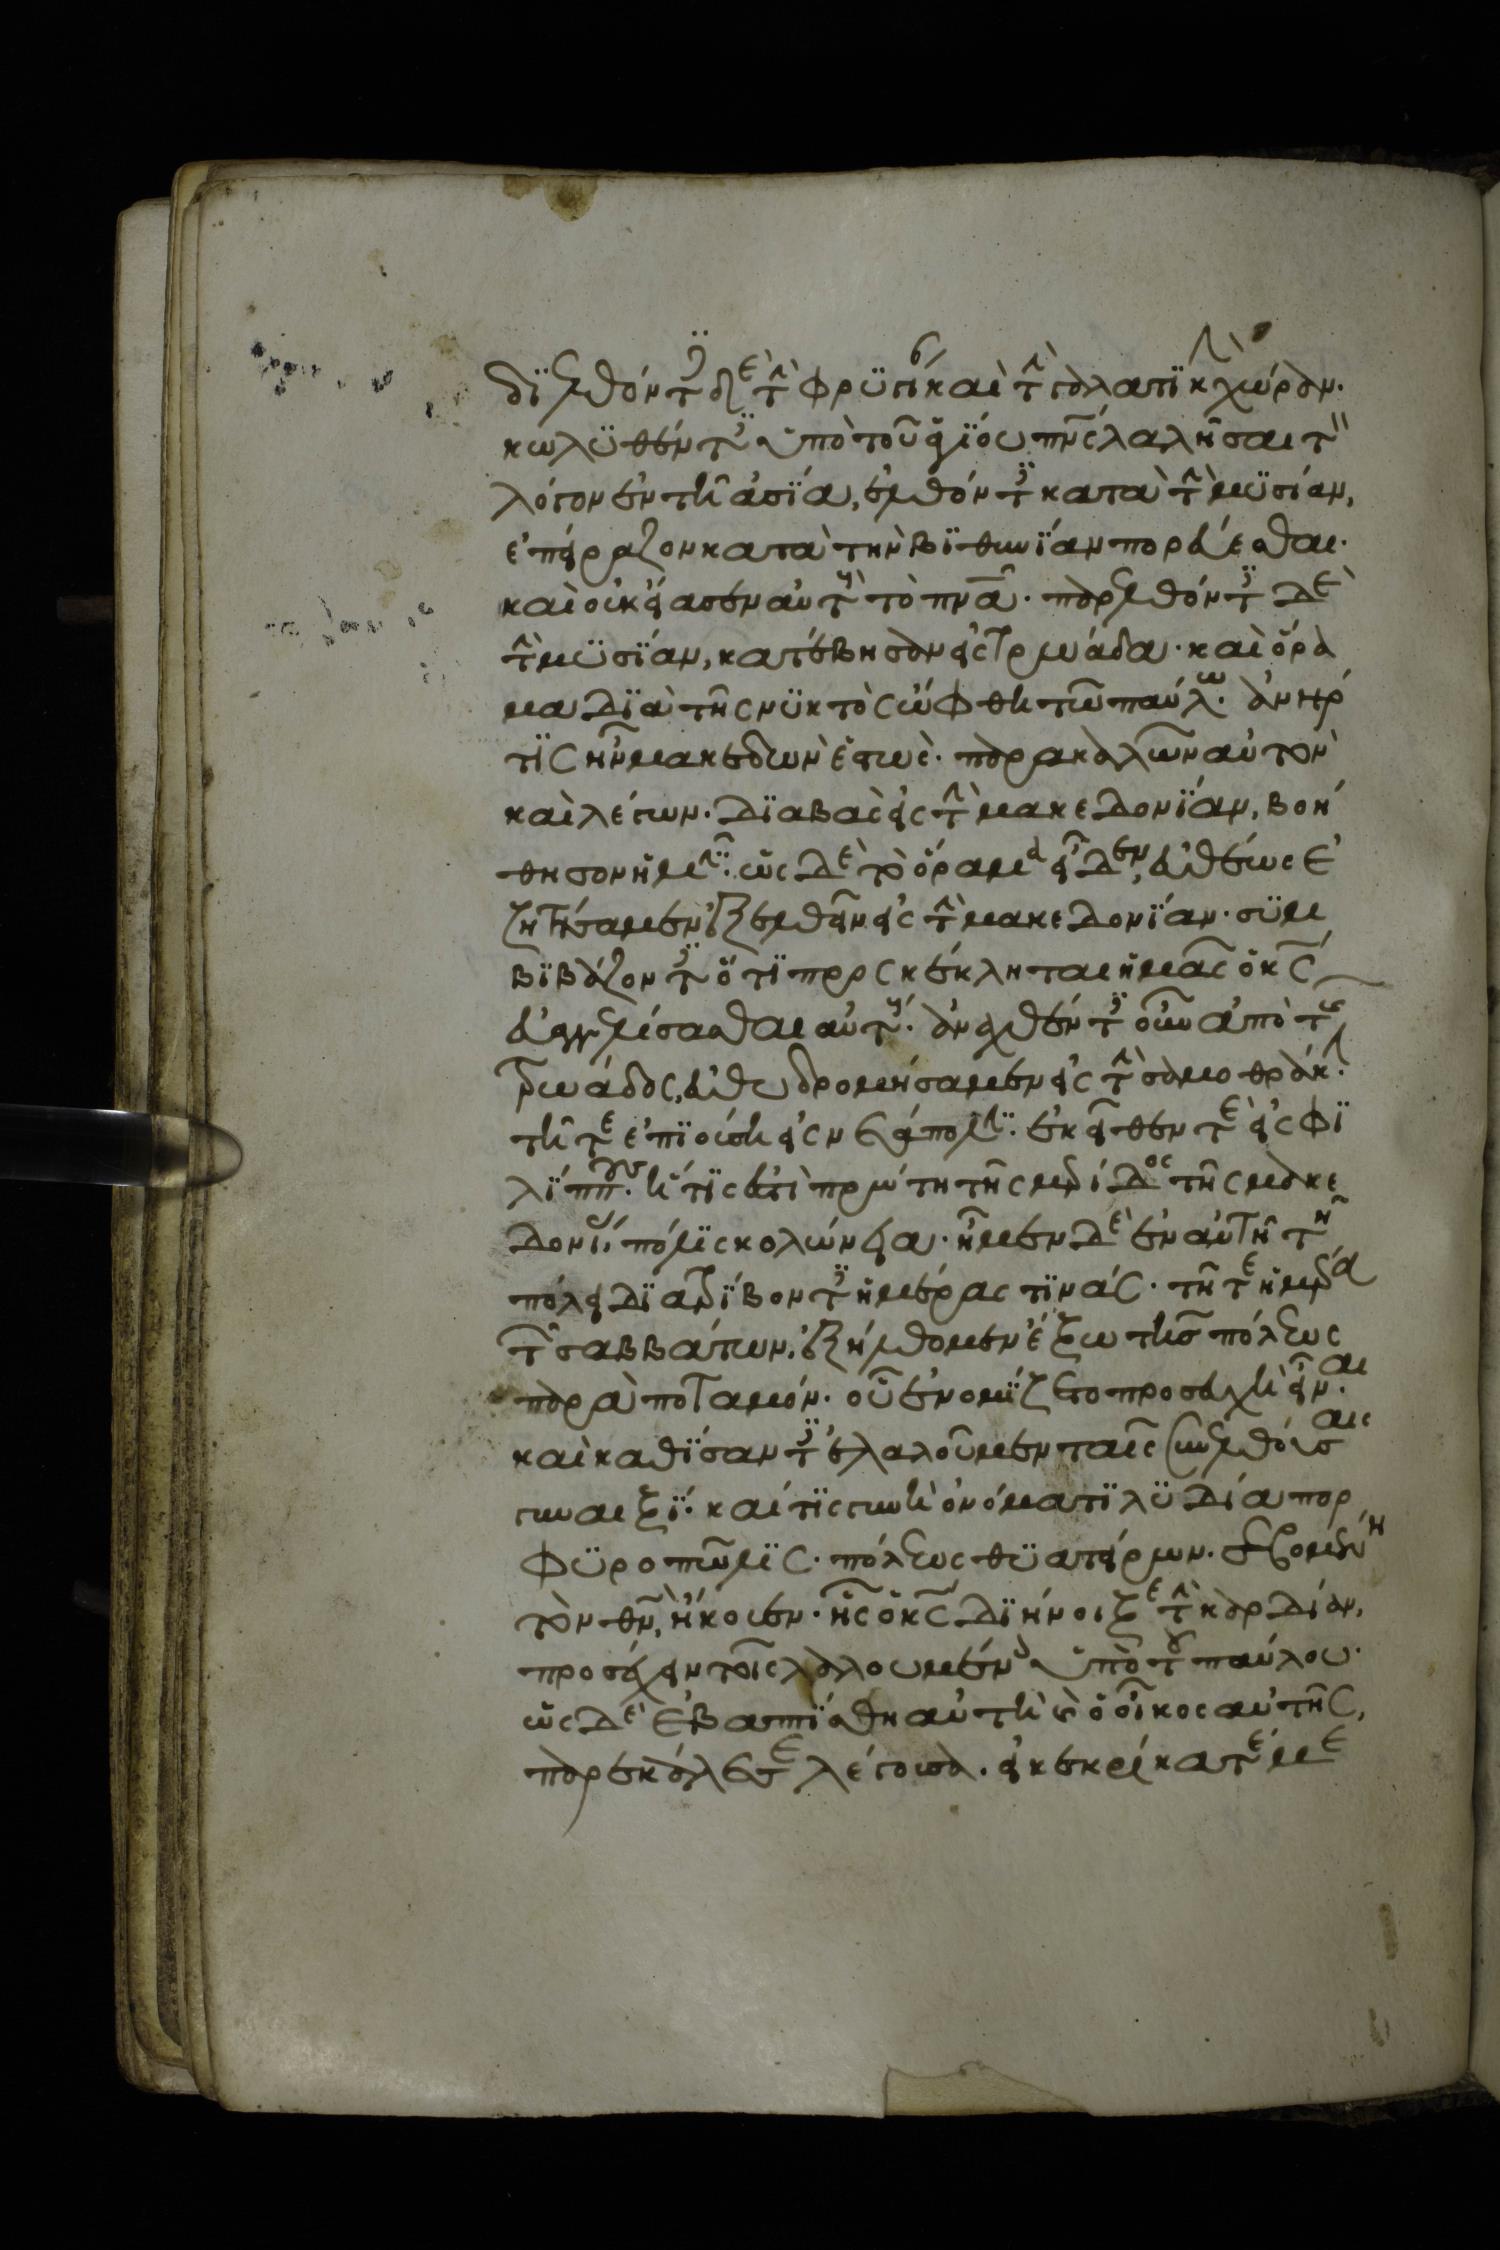 διελθόντες δὲ τὴν φρυγίαν καὶ τὴν γαλατικὴν χώραν·
κωλυθέντες ὑπὸ τοῦ ἁγίου πνς λαλῆσαι τὸν
λόγον ἐν τῆ ἀσία, ἐλθόντες κατὰ τὴν μυσίαν,
ἐπείραζον κατὰ τὴν βιθυνίαν πορεύεσθαι·
καὶ οὐκ εἴασεν αὐτοὺς τὸ πνα· παρελθόντες δὲ
τὴν μυσίαν, κατέβησαν εἰς τρωάδα· καὶ ὅρα
μα διὰ τῆς νυκτὸς ὤφθη τῶ παύλω· ἀνήρ
τις ἦν μακεδὼν ἑστὼς· παρακαλῶν αὐτὸν
καὶ λέγων· διαβὰς εἰς τὴν μακεδονίαν, βοή
θησον ἡμῖν· ὡς δὲ τὸ ὅραμα εἶδεν, εὐθέως ἐ
ζητήσαμεν ἐξελθεῖν εἰς τὴν μακεδονίαν· συμ
βιβάζοντες ὅτι προσκέκληται ἡμᾶς ὁ κς
εὐαγγελίσασθαι αὐτούς· ἀναχθέντες οὖν ἀπὸ τῆς
τρωάδος, εὐθυδρομήσαμεν εἰς τὴν σαμοθράκην·
τῆ τε ἐπιούση εἰς νεάπολιν· ἐκεῖθέν τε εἰς φι
λίππους· ἥτις ἐστὶ πρώτη τῆς μερίδος τῆς μακε
δονίας, πόλις κολώνεια· ἦμεν δὲ ἐν αὐτῆ τῆ
πόλει διατρίβοντες ἡμέρας τινάς· τῆ τε ἡμέρα
τῶν σαββάτων, ἐξήλθομεν ἔξω τῆς πόλεως
παρὰ ποταμόν· οὗ ἐνομίζετο προσευχὴ εἶναι·
καὶ καθίσαντες ἐλαλοῦμεν ταῖς συνελθούσαις
γυναιξί· καί τις γυνὴ ὀνόματι λυδία πορ
φυρόπωλις· πόλεως θυατείρων· σεβομένη
τὸν θν, ἤκουεν· ἧς ὁ κς διήνοιξε τὴν καρδίαν,
προσέχειν τοῖς λαλουμένοις ὑπὸ τοῦ παύλου·
ὡς δὲ ἐβαπτίσθη αὐτὴ καὶ ὁ οἶκος αὐτῆς,
παρεκάλεσε λέγουσα· εἰ κεκρίκατέ με